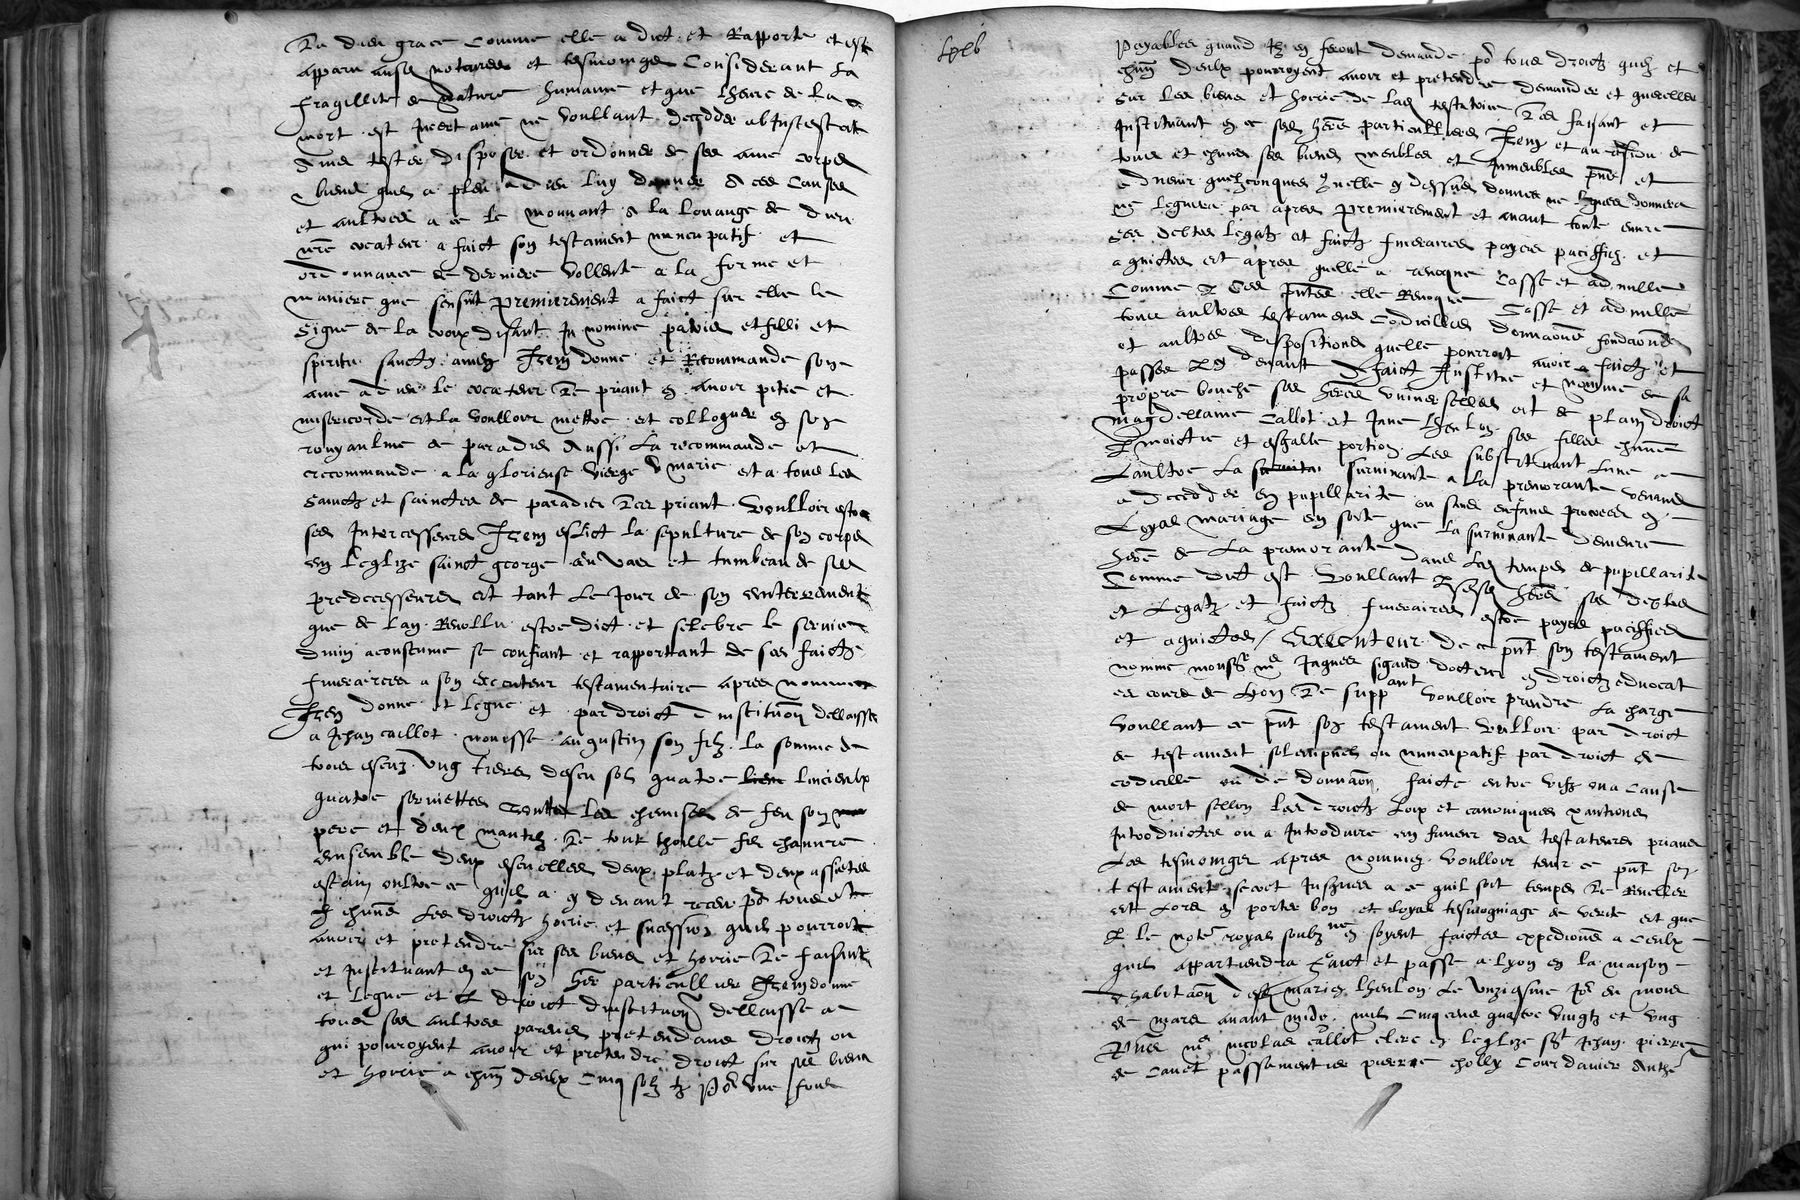 La dieu grace comme elle a dict et Rapporte et est
apparu ausd notaires et tesmoings Considerant la
fragillite de nature humaine et que lheure de la
mort est Incertaine ne voullant decedder abInstestat
Sans tester disposer et ordonner de ses ame corps
biens quil a pleu a dieu luy donner A ces Causes
et aultres a ce le mouvant a la louange de dieu
nre createur a faict son testament nuncupatif et
ordonnance de derniere vollente a la forme et
maniere que sensuit premierement a faict sur elle le
signe de la croix disant In nomine patris et filli et
spiritu sancty amen Item donne et Recommande son
ame a dieu le createur Le priant en avoir pitie et
misericorde et la voulloir mettre et colloquer en son
royaulme de paradis Aussi la recommande et
recommande a la glorieuse vierge marie et a tous les
sainctz et sainctes de paradis Les priant voulloir estre
ses Intercesseurs Item eslict la sepulture de son corps
en leglize sainct george au vas et tumbeau de ses
predecesseurs et tant le Jour de son enterrement
que de lan Revollu estre dict et selebre le service
divin acoustume se confiant et rapportant de ses faictz
funeraires a son executeur testamentaire apres nomme
Item donne et legue et par droict dinstituon dellaisse
a Jehan caillot augustin son filz la somme de
trois escuz ung tiers descu sol quatre linceulx
quatre serviettes toutes les chemises de feu son
pere et deux mantilz Le tout thoille fil chanvre
ensemble deux escuelles deux platz et deux assiettes
estain oultre ce quil a cy devant receu po tous et
chuns les droictz hoirie et sucession quil pourroit
avoir et pretendre sur ses biens et hoirie Le faisant
et Instituant en ce son her particullier Item donne
et legue et droict dinstituon dellaisse a
tous ses aultres parens pretendans droictz ou
qui pouroyent avoir et pretendre droict sur ses biens
et hoirie a chun deulx Cinq solz tz po une fois
payables quand Ilz en feront demande po tous droictz quilz et
chun deulx pourroyent avoir et pretendre demander et quereller
sur les biens et hoirie de lad testatrice Les faisant et
Instituant en ce ses heres particulliers Item et au residu de
tous et chuns ses biens meubles et Inmeubles pns et
advenir quelzconques quelle cy dessus donnes ne legues donnera
ne leguera par apres premierement et avant toute euvre
ses debtes legatz et faictz funeraires payes paciffies et
aquictes et apres quelle a revoque Casse et adnulle
Comme Ces pntes elle Revoque Casse et adnulle
tous aultres testamens Codicilles donnaons
et aultres dispositions quelle pourroit avoir faictz et
passes cy devant Faict Institue et nomme de sa
propre bouche ses heres universelles et de plain droict
magdellaine Callot et Jane lheulon ses filles chune
moictie et esgalle portion Les substituant lune a
laultre La survivante a la premorante venant
a decedder en pupillarite ou sans enfans procrees en
Loyal mariage en sorte que la survivante demeure
here de La premorante dans led temps de pupillarite
Comme dict est Voullant lesd heres ses debtes
et legatz et faictz funeraires estre payes paciffies
et aquictes / Executeur de ce pnt son testament
nomme monsr me Jaques sigaud docteur en droictz advocat
es cours de lyon Le suppant voulloir prendre la charge
voullant ce pnt son testament valloir par droict
de testament solempnel ou nuncupatif par droict de
codicille ou de donnaon faicte entre vifz ou a Cause
de mort sellon les droictz loix et canoniques xantions
Introduictes ou a Introduire en faveur des testateurs priant
les tesmoingz apres nommez voulloir tenir ce pnt son
testament secret Jusques a ce quil soit temps Le Reveller
et lors en porter bon et loyal tesmognaige de verite et que
le notre royal soubzne en soyent faictes expedions a Ceulx
quil appartiendra Faict et passe a Lyon en la maison
dhabitaon lheulon Le unziesme Jor du mois
de mars avant midy mil Cinq cens quatre vingtz et ung
me nicolas Callot clerc en leglize st Jehan pierre
de Canet passementier pierre cholly Courdanier Anthe